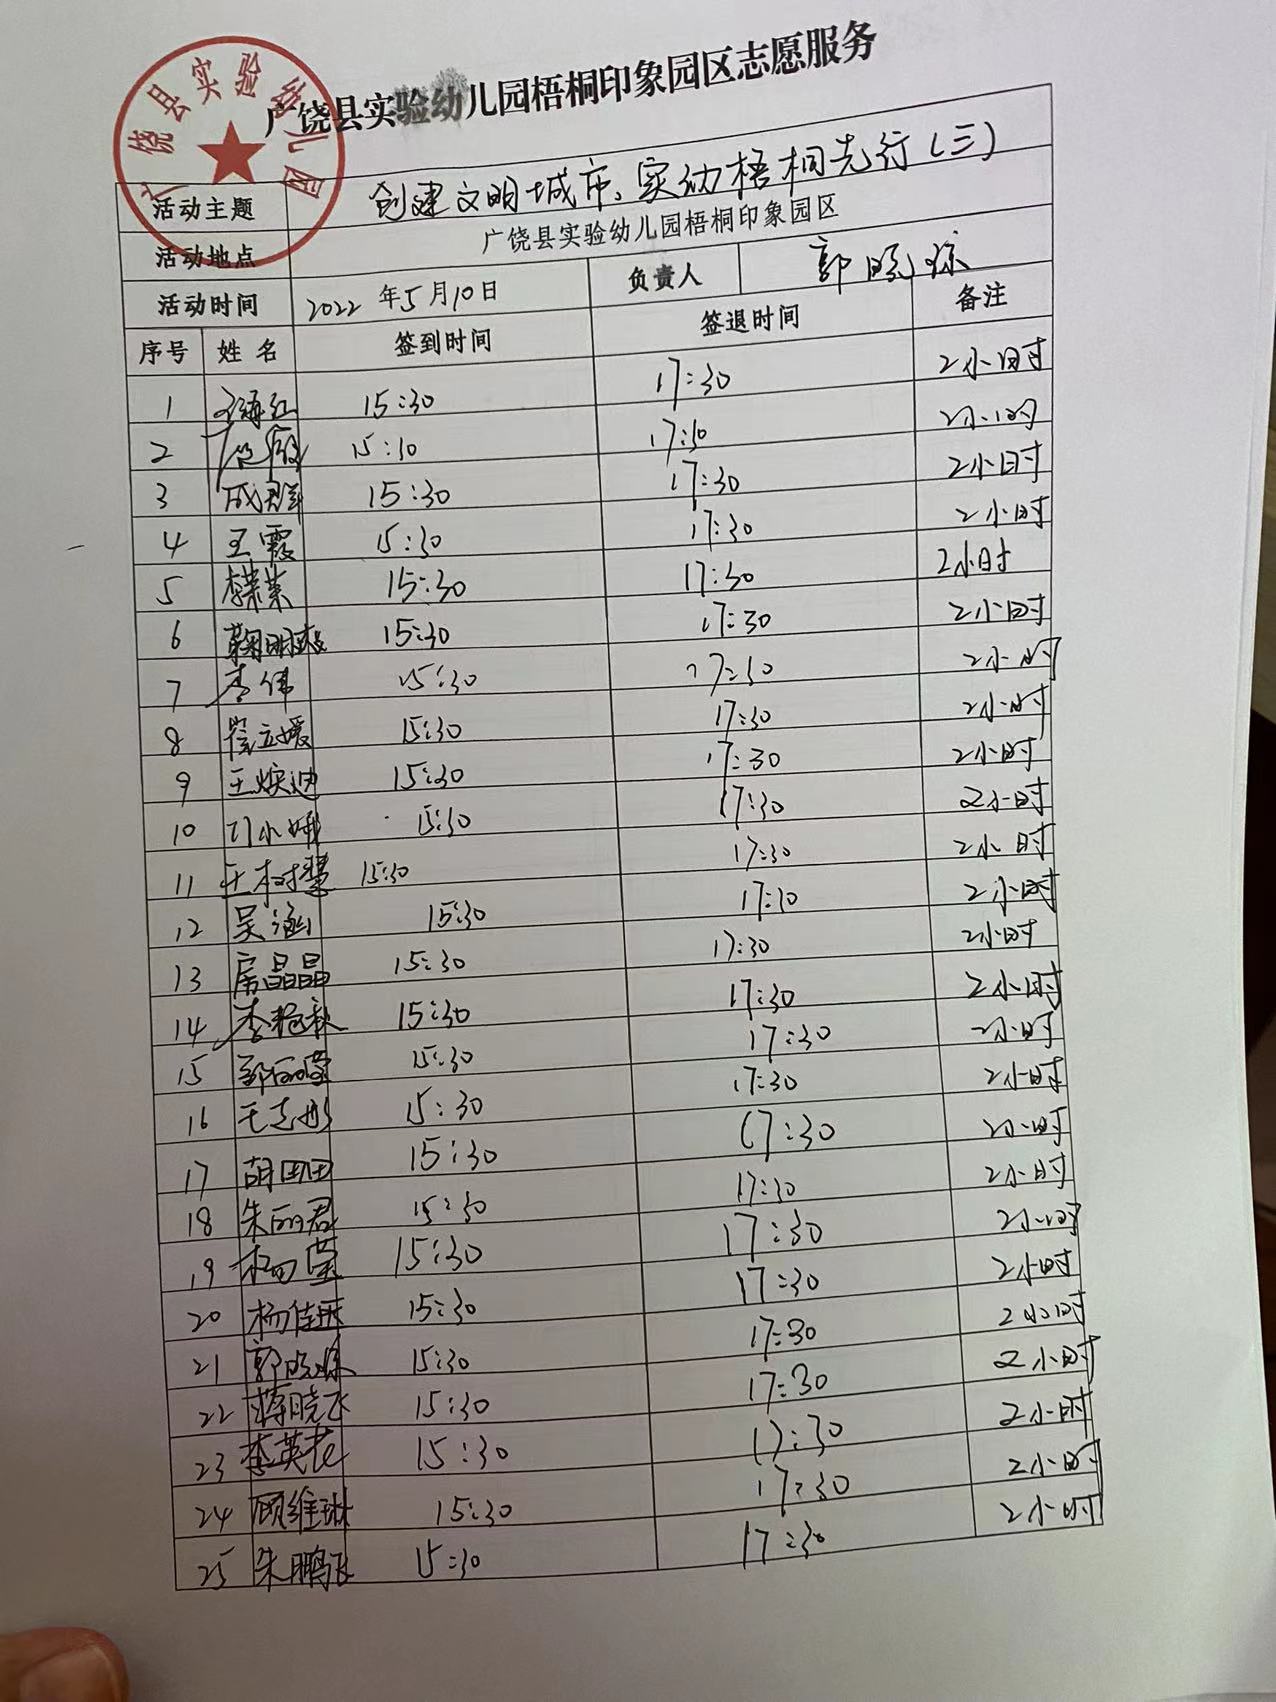 广饶县实验幼儿园梧桐印象园区志愿服务
广饶县实验幼儿园
活动主题 创建文明城市、实幼梧桐先行(三)
活动地点 广饶县实验幼儿园梧桐印象园区
活动时间 2022年5月10日 负责人 郭晓琼
序号 姓名 签到时间 签退时间 备注
1 15:30 17:30 2小时
2 15:30 17:30 2小时
3 成群 15:30 17:30 2小时
4 王霞 15:30 17:30 2小时
5 李荣荣 15:30 17:30 2小时
6 15:30 17:30 2小时
7 李伟 15:30 17:30 2小时
8 崔立媛 15:30 17:30 2小时
9 王焕迪 15:30 17:30 2小时
10 15:30 17:30 2小时
11 王树慧 15:30 17:30 2小时
12 吴涵 15:30 17:30 2小时
13 房晶晶 15:30 17:30 2小时
14 李艳秋 15:30 17:30 2小时
15 15:30 17:30 2小时
16 王志彤 15:30 17:30 2小时
17 胡田田 15:30 17:30 2小时
18 朱丽君 15:30 17:30 2小时
19 15:30 17:30 2小时
20 15:30 17:30 2小时
21 郭晓琼 15:30 17:30 2小时
22 蒋晓飞 15:30 17:30 2小时
23 李英花 15:30 17:30 2小时
24 顾维琳 15:30 17:30 2小时
25 朱鹏飞 15:30 17:30 2小时